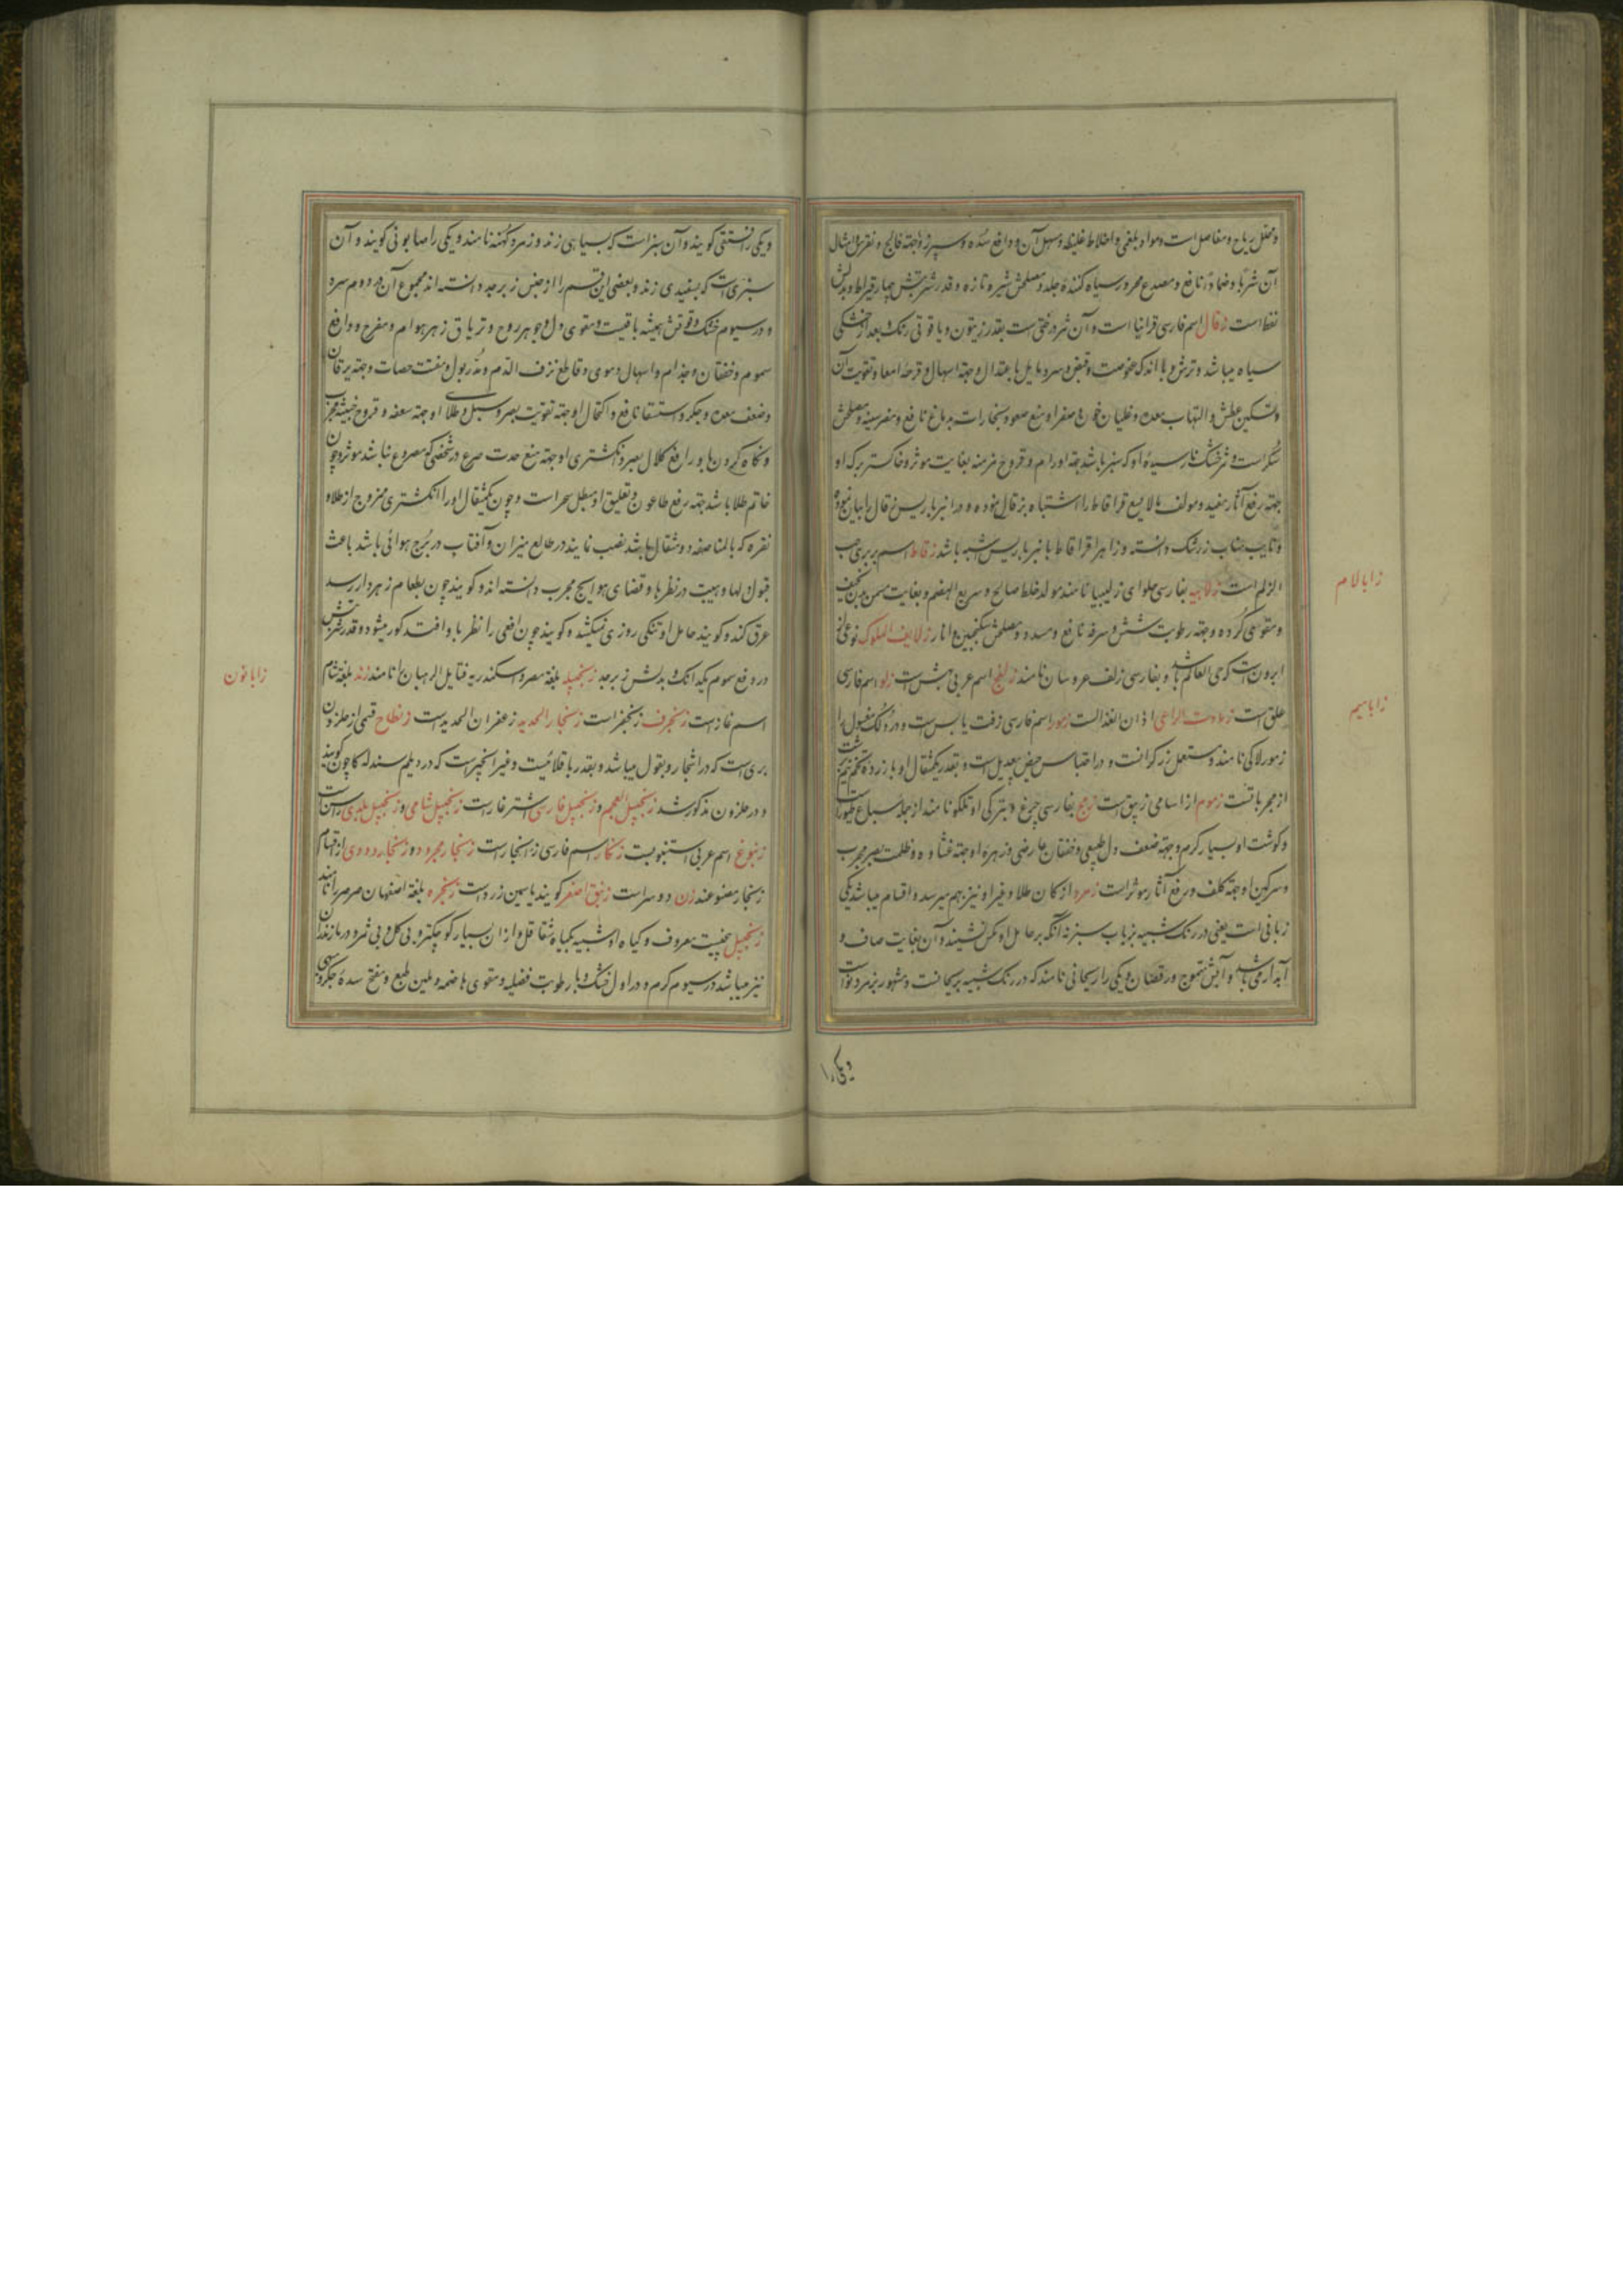 و محلل ریاح و مفاصل است و مواد بلغمی و اخلاط غلیظه و مسهل آن و دافع سده و سپرز و جهة فالج و نقرس و امثال
آن شربا و ضمادا نافع و مصدع محرور و سیاه کننده جلد و مصلحش شیر تازه و قدر شربتش چهار قیراط و بدلش
نفط است زقال اسم فارسی قرانیا است و آن ثمر درختی است بقدر زیتون و یاقوتی رنک و بعد از خشکی
سیاه میباشد و ترش و با اندک عفوصت و قبض و سرد مایل باعتدال و جهة اسهال و قرحه امعا و تقویت آن
و تسکین عطش و التهاب معده و غلیان خون و صفرا و منع صعود بخارات بدماغ نافع و مضر سینه و مصلحش
شکر است و ثمر خشک نارسیده او که سبز باشد جهة اورام و قروح مزمنه بغایت موثر و خاکستر برک او
جهة رفع آثار مفید و مولف مالایسع قراقاط را اشتباه بزقال نموده و در انبرباریس زقال را بیان نموده
و نایب مناب زرشک دانسته و ظاهرا قراقاط با انبرباریس اشبه باشد زقاط اسم بربری حب
الزلم است زلابیه بفارسی حلوای زلیبیا نامند مولد خلط صالح و سریع الهضم و بغایت مسمن بدن نحیف
و مقوی گرده و جهة رطوبت شش و سرفه نافع و مسدد و مصلحش سکنجبین و انار زلایف الملوک نوعی از
ابرون است که حی العالم باشد و بفارسی زلف عروسان نامند زلنج اسم عربی مشمش است زلو اسم فارسی
علق است زمارت الراعی اذان الغذالست زمور اسم فارسی زفت یابس است و در تنکابن مغبول را
زمورلاکی نامند و مستعمل زرکرانست و در احتباس حیض بیعدیل است و بقدر یکمثقال او با زرده تخم نیم برشت
از مجرباتست زموم از اسامی زیبق است زمج بفارسی چرغ و بترکی اوتلکو نامند از جمله سباع طیور است
و کوشت او بسیار کرم و جهة ضعف دل طبیعی و خفقان عارضی و زهره او جهة غشاوه و ظلمت بصر مجرب
و سرکین او جهة کلف و رفع آثار موثر است زمرد از کان طلا و غیر او نیز بهم میرسد و اقسام میباشد یکی
زبابی است یعنی در رنک شبیه بزباب سبز نه آنکه بر حامل او مکس ننشیند و آن بغایت صاف و
آبدار می باشد و آبش متموج و رقصان و یکی را ریحانی نامند که در رنک شبیه بریحانست و مشهور بزمرد نو است
ویکی را
زا با لام
زا با میم
و یکی را فستقی کویند و آن سبز است که بسیاهی زند و زمرد کهنه نامند و یکی را صابونی کویند و آن
سبزی است که بسفیدی زند و بعضی این قسم را از جنس زبرجد دانسته اند مجموع آن در دوم سرد
و در سیوم خشک و قوتش همیشه باقیست و مقوی دل و جوهر روح و تریاق زهر هوام و مفرح و دافع
سموم و خفقان و جذام و اسهال دموی و قاطع نزف الدم و مدر بول و مفتت حصات و جهة یرقان
و ضعف معده و جکر و استسقا نافع و اکتحال او جهة تقویت بصر و سبل و طلاء او جهة سعفه و قروح خبیثه مجرب
و نکاه کردن باو رافع کلال بصر و انکشتری او جهة منع حدت صرع در شخصی که مصروع نباشد موثر و چون
خاتم طلا باشد جهة رفع طاعون و تعلیق او مبطل سحر است و چون یکمثقال او را بانکشتری ممزوج از طلا و
نقره که بالمناصفه دو مثقال باشد نصب نمایند در طالع میزان و آفتاب در برج هوائی باشد باعث
قبول دلها و هیبت در نظرها و قضای حوایج مجرب دانسته اند و کویند چون بطعام زهردار رسد
عرق کند و کویند حامل او تنکی روزی نمیکشد و کویند چون افعی را نظر باو افتد کور میشود و قدر شربتش
در دفع سموم یکدانک و بدلش زبرجد زنجبیله بلغة مصر و اسکندریه فتایل الرهبان را نامند زند بلغة شام
اسم غار است زنجرف زنجفر است زنجار الحدید زعفران الحدید است زنطاح قسمی از حلزون
بری است که در اشجار و بقول میباشد و بقدر باقلائیست و غیر انجیر است که در دیلم سندله کاچون کویند
و در حلزون مذکور شد زنجبیل العجم و زنجبیل فارسی اشترغار است زنجبیل شامی و زنجبیل بلدی راسن است
زنبوع اسم عربی استنبوبیت زنکار اسم فارسی زنجار است زنجار مجرود و زنجار دودی از اقسام
زنجار مصنوعند زن دوسر است زنبق اصفر کویند یاسمین زرد است زنجره بلغة اصفهان صرصر را نامند
زنجبیل بیخیست معروف و کیاه او شبیه بکیاه شقاقل و از ان بسیار کوچکتر و بی کل و بی ثمر و در مازندران
نیز میباشد در سیوم کرم و در اول خشک و با رطوبت فضلیه و مقوی هاضمه و ملین طبع و مفتح سدۀ جکر و
زا با نون